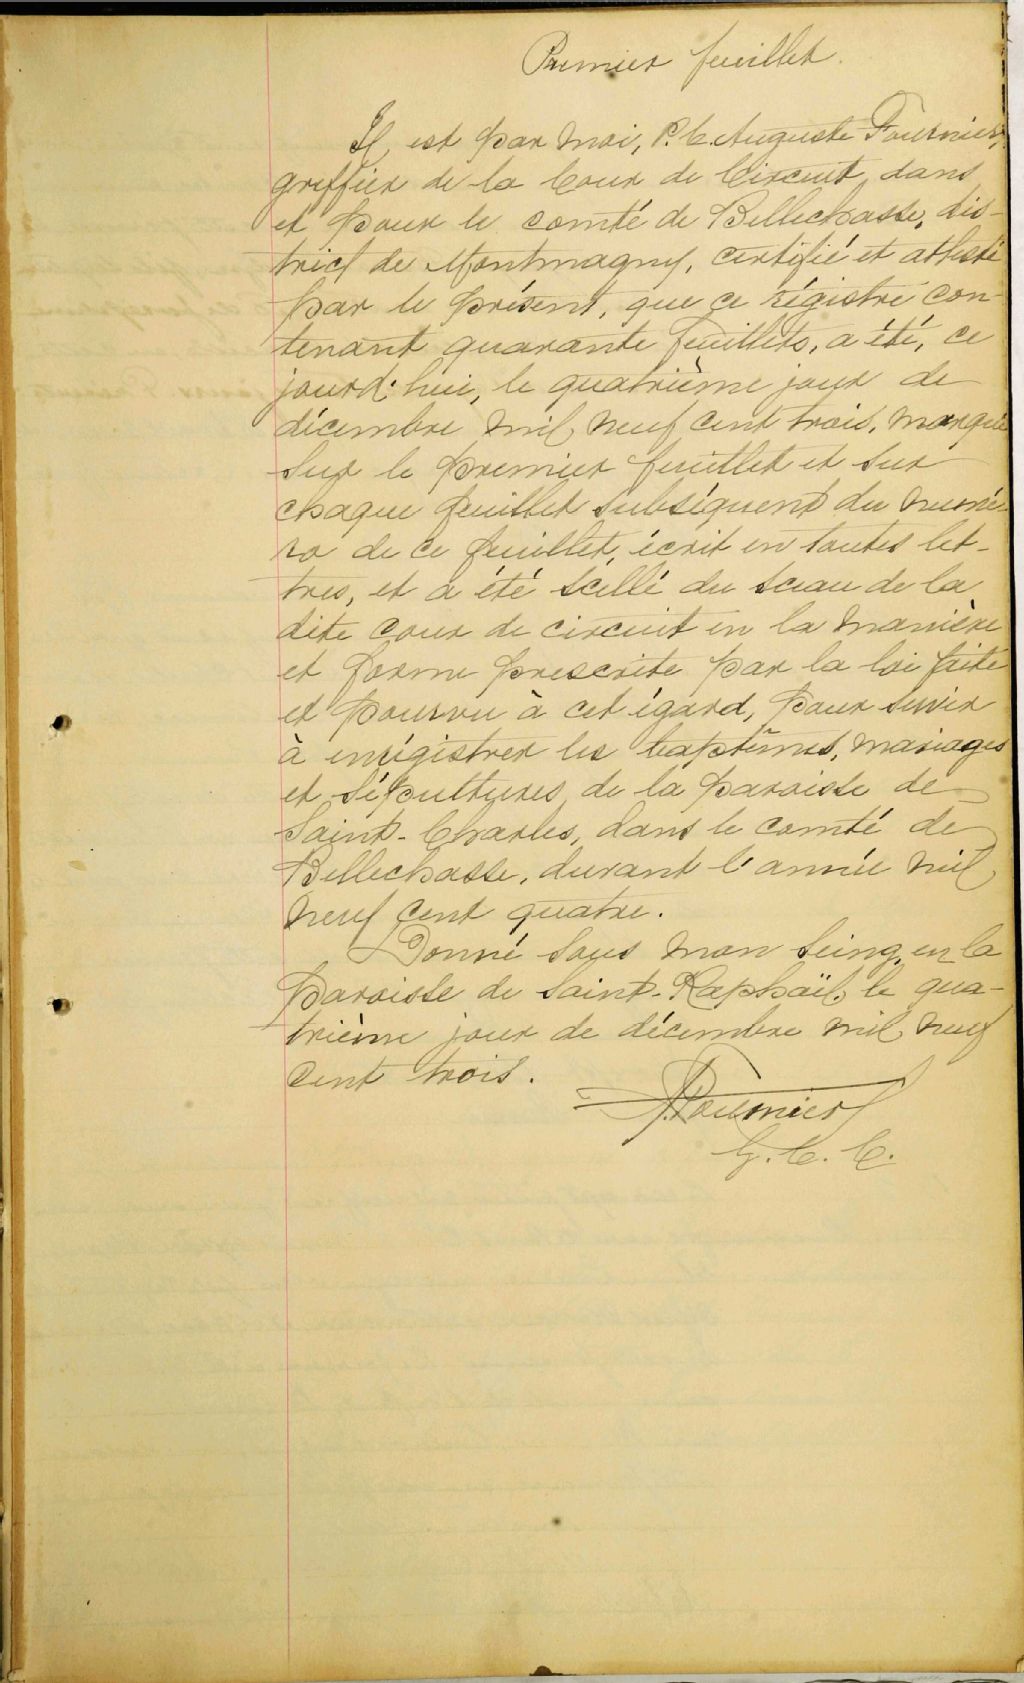 Premier feuillet.
Il est par moi, P. C. Auguste Fournier,
greffier de la Cour de Circuit, dans
et pour le comté de Bellechasse, dis-
trict de Montmagny, certifié et attesté
par le présent, que ce régistre con-
tenant quarante feuillets, a été, ce
jourd'hui, le quatrième jour de
décembre mil neuf cent trois, marqué
sur le premier feuillet et sur
chaque feuillet subséquent du numé-
ro de ce feuillet, écrit en toutes let-
tres, et a été scellé du sceau de la
dite cour de circuit en la manière
et forme prescrite par la loi faite
et pourvu à cet égard, pour servir
à enrégistrer les baptêmes, mariages
et sépultures de la paroisse de
Saint-Charles, dans le comté de
Bellechasse, durant l'année mil
neuf cent quatre.
Donné sous mon seing, en la
paroisse de Saint-Raphaël, le qua-
trième jour de décembre mil neuf
cent trois.
A. Fournier
G. C. C.